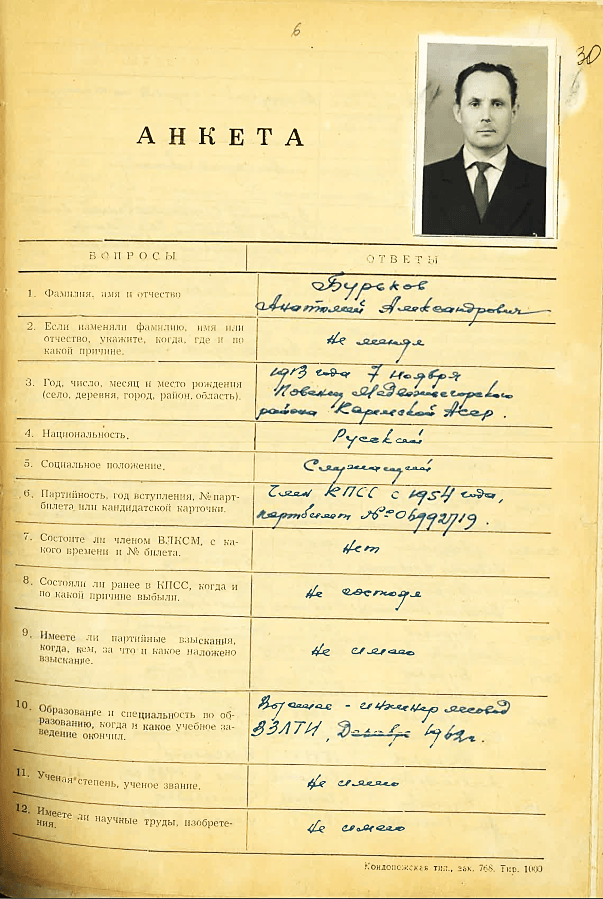 6
30
АНКЕТА
ВОПРОСЫ
ОТВЕТЫ
1. Фамилия, имя и отчество
Бурьков
Анатолий Александрович
2. Если изменяли фамилию, имя или
отчество, укажите, когда, где и по
какой причине.
Не менял
3. Год, число, месяц и место рождения
(село, деревня, город, район, область).
1913 года 7 ноября
Повенец Медвежьегорского
района Карельской Асср.
4. Национальность.
Русский
5. Социальное положение.
Служащий
6. Партийность, год вступления, № парт-
билета или кандидатской карточки.
Член КПСС с 1954 года,
партбилет № 06992719.
7. Состоите ли членом ВЛКСМ, с ка-
кого времени и № билета.
Нет
8. Состояли ли ранее в КПСС, когда и
по какой причине выбыли.
Не состоял
9. Имеете ли партийные взыскания,
когда, кем, за что и какое наложено
взыскание.
Не имею
10. Образование и специальность по об-
разованию, когда и какое учебное за-
ведение окончил.
Высшее - инженер лесовод
ВЗЛТИ, Декабрь 1962г.
11. Ученая степень, ученое звание.
Не имею
12. Имеете ли научные труды, изобрете-
ния.
Не имею
Кондопожская тип., зак. 768. Тир. 1000